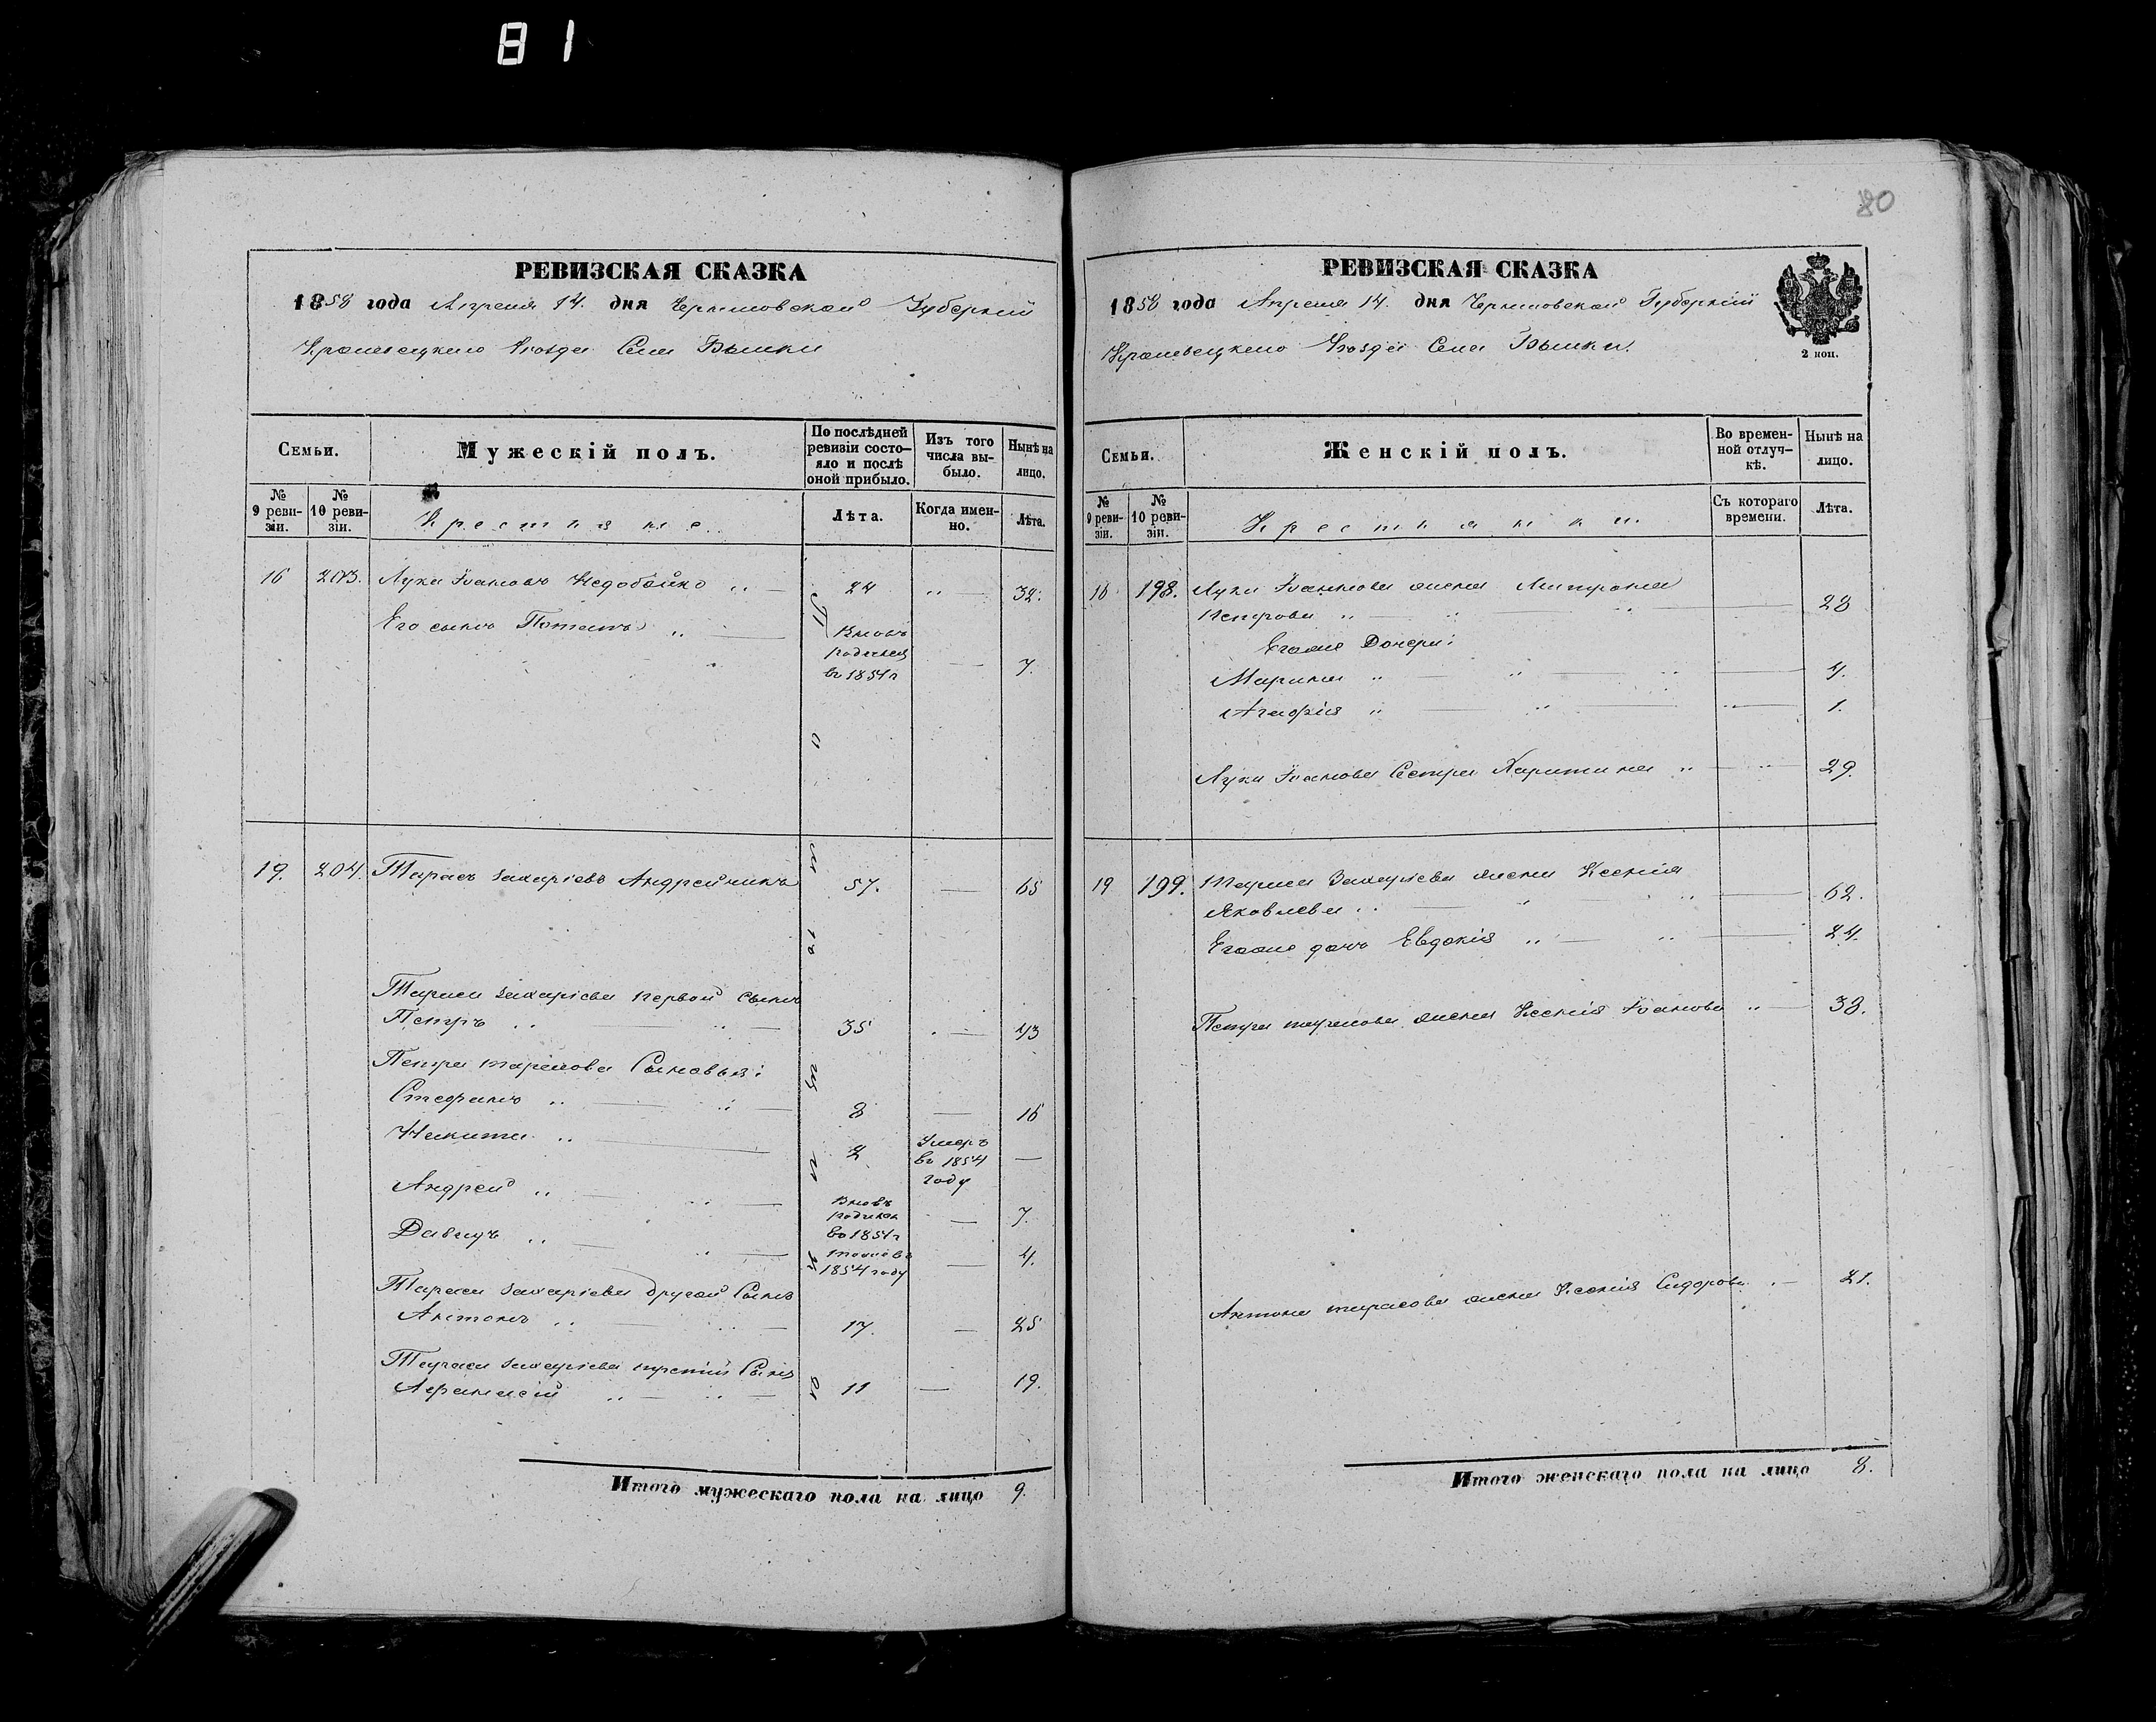 81
80
РЕВИЗСКАЯ СКАЗКА
1858 года Апреля 14. дня Черниговской Губернии
Кролевецкого Уезда Села Быики
Семьи.
Мужескій полъ.
По послѣдней ревизіи состояло и послѣ оной прибыло.
Изъ того числа выбыло.
Нынѣ на лицо.
№ 9 ревизіи.
№ 10 ревизіи.
Крестьяне.
Лѣта.
Когда именно.
Лѣта.
16 203. Лука Ивановъ Недобойко 24 32.
Его сынъ Потапъ Вновь родился въ 1851 г 7.
19. 204. Тарасъ Захаріевъ Андрейчикъ 57. 65
Тараса Захаріева первой сынъ
Петръ 35 43
Петра Тарасова Сыновья:
Стефанъ 8 16
Никита 2 Умеръ въ 1854 году —
Андрей Вновь родился въ 1851 г 7.
Давидъ тоже въ 1854 году 4.
Тараса Захаріева другой Сынъ
Антонъ 17. 25
Тараса Захаріева третій Сынъ
Афанасій 11 19.
Итого мужескаго пола на лицо 9.
РЕВИЗСКАЯ СКАЗКА
1858 года Апреля 14. дня Черниговской Губерніи
Кролевецкого Уезда Села Быики.
2 коп.
Семьи.
Женскій полъ.
Во временной отлучкѣ.
Нынѣ на лицо.
№ 9 ревизіи.
№ 10 ревизіи.
Крестьянки.
Съ котораго времени.
Лѣта.
16 198. Луки Иванова жена
Петрова 28
Егоже Дочери:
Марина 4.
Агафія 1.
Луки Иванова Сестра Харитина 29.
19 199. Тараса Захаріева жена Ксенія
Яковлева 62.
Егоже дочь Евдокія 24.
Петра Тарасова жена Ксенія Иванова 38.
Антона Тарасова жена Ксенія Сидорова 21.
Итого женскаго пола на лицо 8.